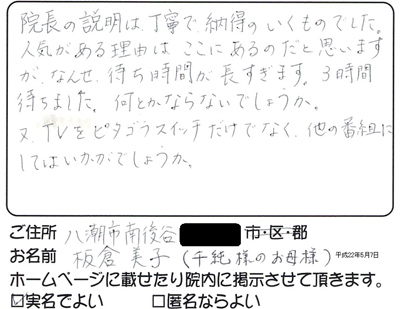 院長の説明は、丁寧で納得のいくものでした。
人気がある理由は、ここにあるのだと思います
が、なんせ、待ち時間が長すぎます。3時間
待ちました。何とかならないでしょうか。
又、TVをピタゴラスイッチだけでなく、他の番組に
してはいかがでしょうか。
ご住所 八潮市南後谷 市・区・郡
お名前 板倉 美子(千純様のお母様) 平成22年5月7日
ホームページに載せたり院内に掲示させて頂きます。
☑実名でよい □匿名ならよい